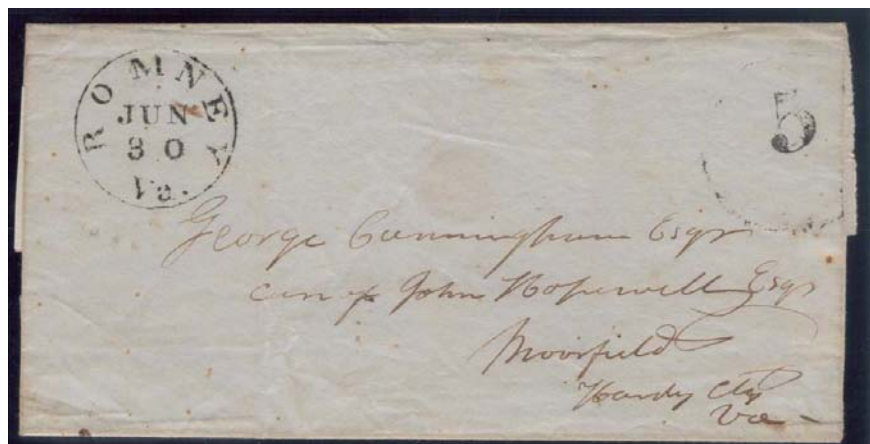 ROMNEY
JUN
30
Va.
5
George Cunningham Esqr
John Hopewell Esqr
Moorfield
Hardy Cty
Va